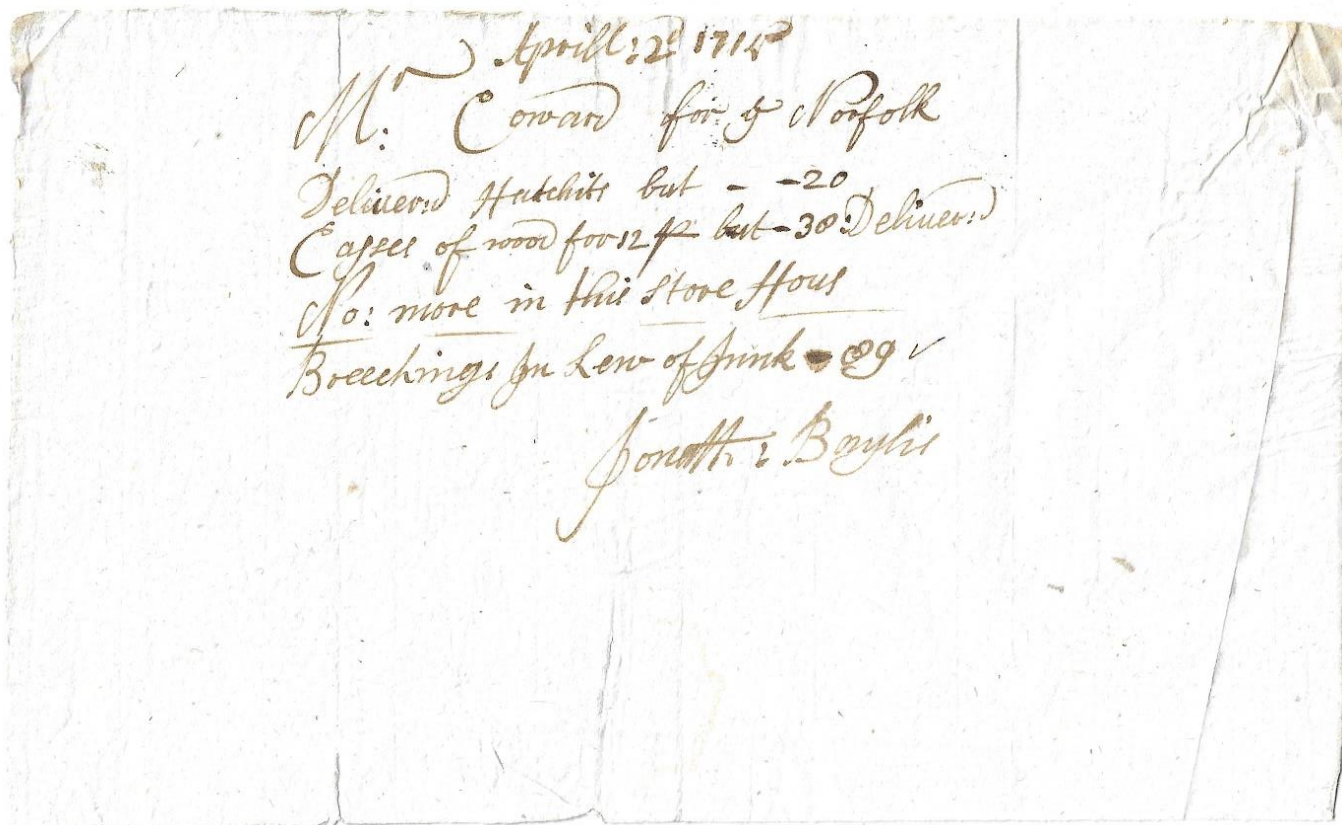 Aprill: 2d 1715
Mr: Coward for ye Norfolk
Deliver:d Hatchits but - - 20
Casses of wood for 12 pr but - 38: Deliver:d
No: more in this Store Hous
Breechings In Lew of Junk - 89
Jonath: Baylis